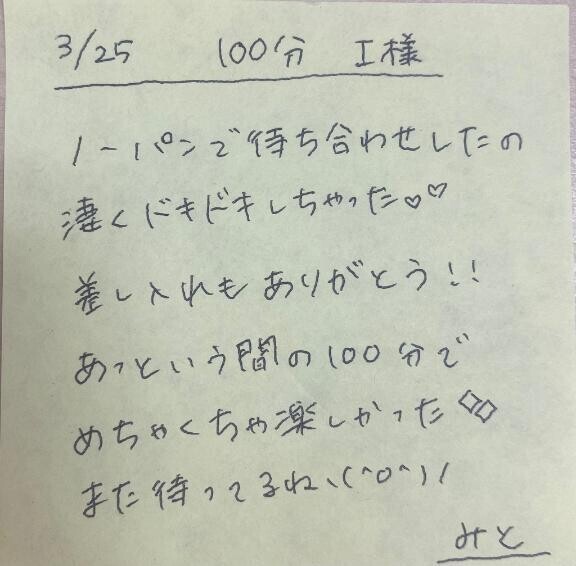 3/25 100分 I様
ノーパンで待ち合わせしたの
凄くドキドキしちゃった♡♡
差し入れもありがとう!!
あっという間の100分で
めちゃくちゃ楽しかった◇◇
また待ってるね\(^o^)/
みと